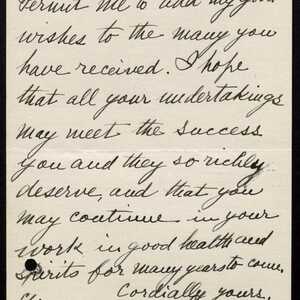 Permit me to add my good
wishes to the many you
have received. I hope
that all your undertakings
may meet the success
you and they so richly
deserve, and that you
may continue in your
work in good health and
spirits for many years to come.
Cordially yours,